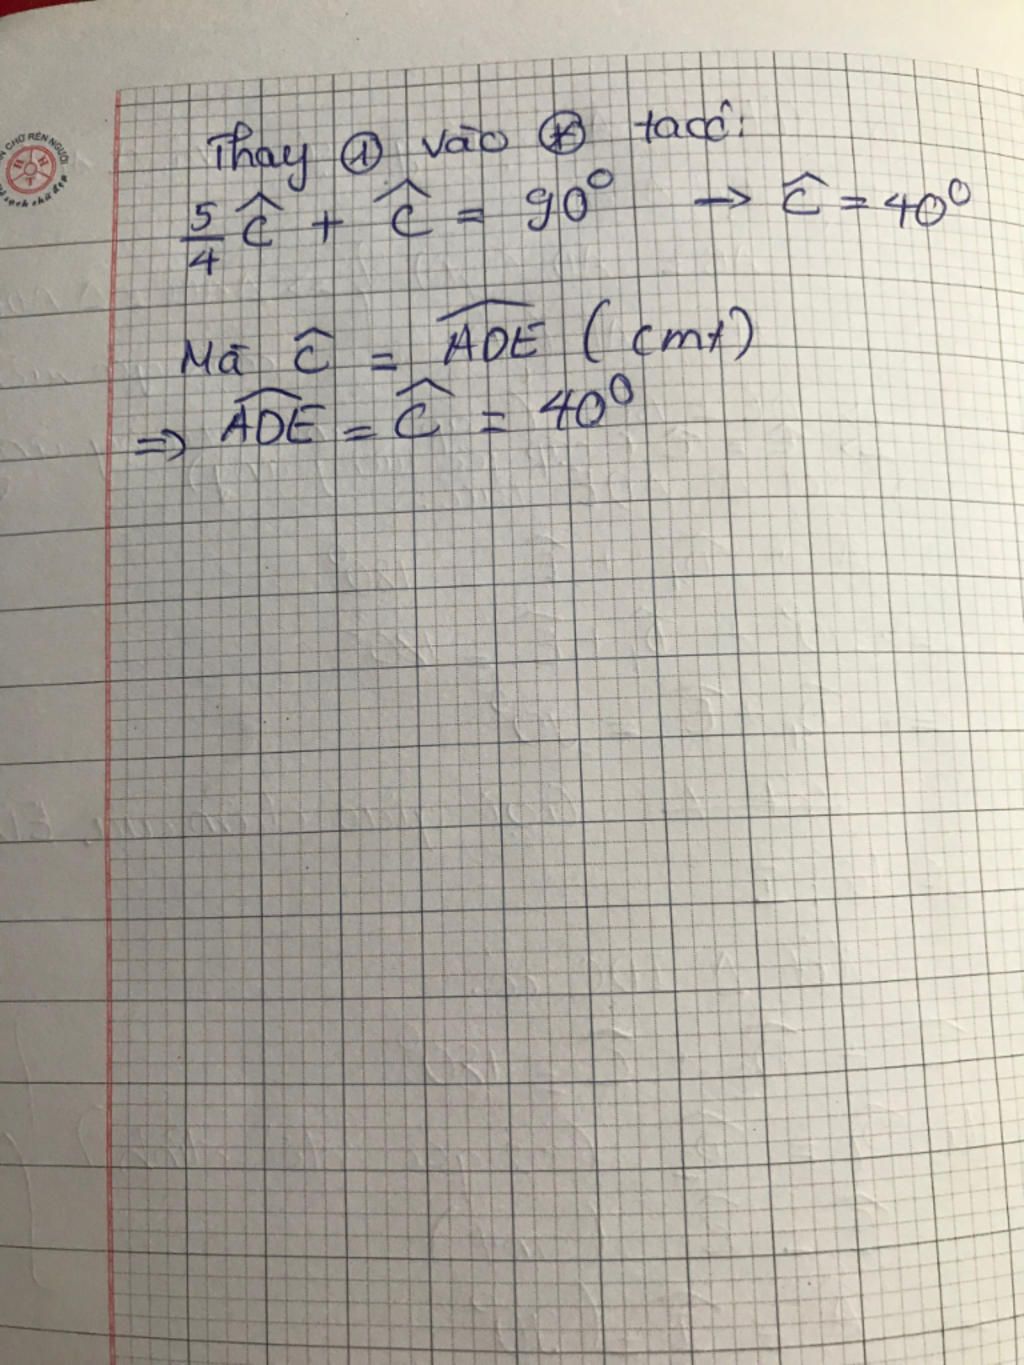 N CHỮ RÈN NGƯỜI
Thay ① vào ⊛ ta có:
5/4 Ĉ + Ĉ = 90⁰ → Ĉ = 40⁰
Mà Ĉ = ADE (cmt)
=> ADE = Ĉ = 40⁰